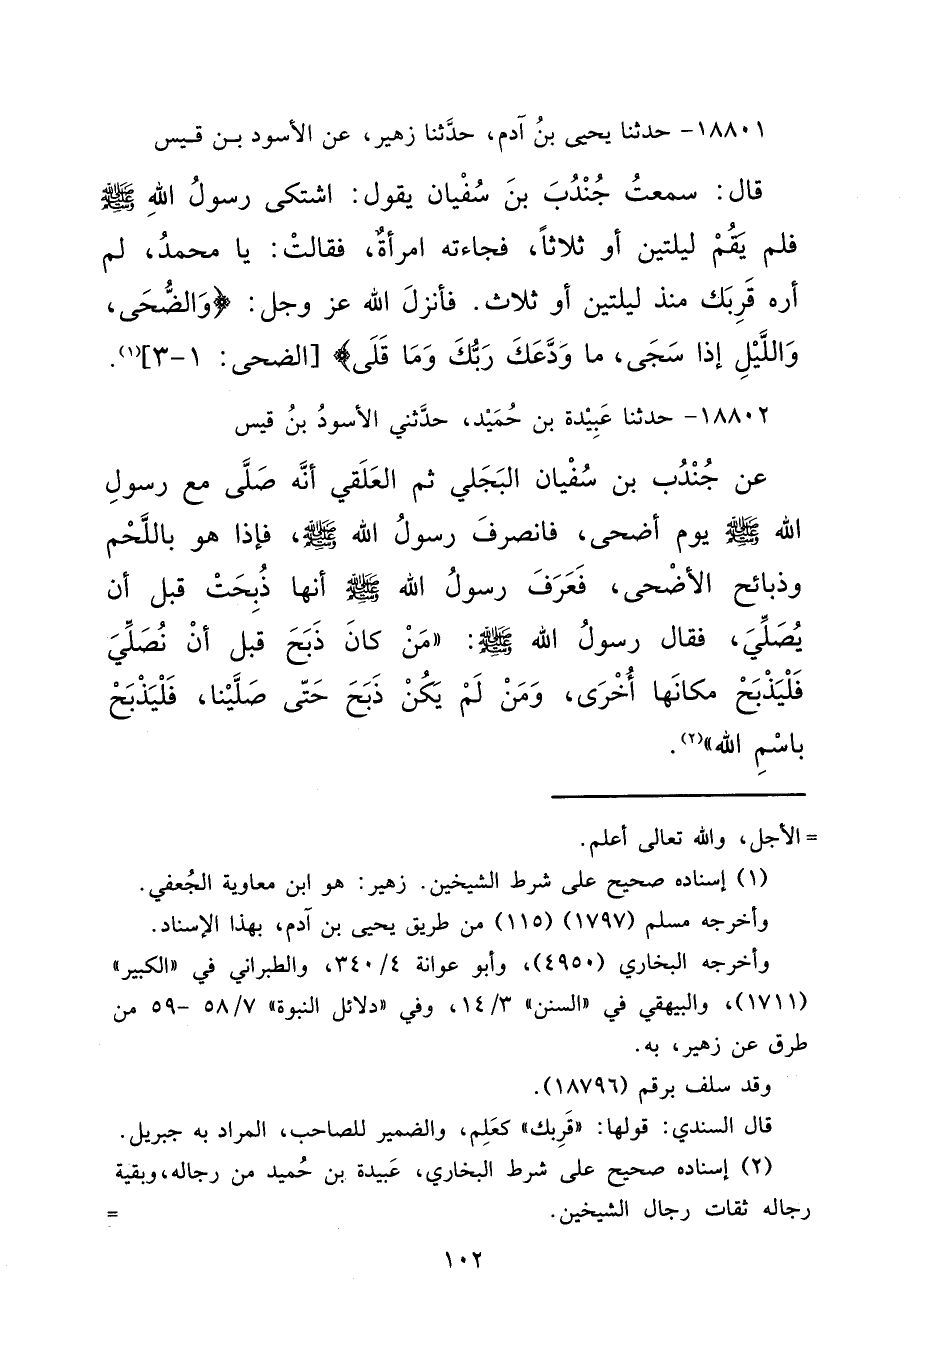 ١٨٨٠١- حدثنا يحيى بنُ آدم، حدَّثنا زهير، عن الأسود بـن قـيس
قال: سمعتُ جُنْدُبَ بنَ سُفْيان يقول: اشتكى رسولُ اللهِ ﷺ
فلم يَقُمْ ليلتين أو ثلاثاً، فجاءته امرأةٌ، فقالتْ: يا محمدُ، لم
أره قَرِبَك منذ ليلتين أو ثلاث. فأنزلَ الله عز وجل: ﴿وَالضُّحَى،
وَاللَّيْلِ إذا سَجَى، ما وَدَّعَكَ رَبُّكَ وَمَا قَلَى﴾ [الضحى: ١-٣](١).
١٨٨٠٢- حدثنا عَبِيْدة بن حُمَيْد، حدَّثني الأسودُ بنُ قيس
عن جُنْدُب بن سُفْيان البَجَلي ثم العَلَقي أنَّه صَلَّى مع رسولِ
الله ﷺ يوم أضحى، فانصرفَ رسولُ الله ﷺ، فإذا هو باللَّحْم
وذبائح الأضْحى، فَعَرَفَ رسولُ الله ﷺ أنها ذُبِحَتْ قبل أن
يُصَلِّيَ، فقال رسولُ الله ﷺ: «مَنْ كانَ ذَبَحَ قبل أنْ نُصَلِّيَ
فَلْيَذْبَحْ مكانَها أُخْرَى، وَمَنْ لَمْ يَكُنْ ذَبَحَ حَتّى صَلَّيْنا، فَلْيَذْبَحْ
باسْمِ الله»(٢).
= الأجل، والله تعالى أعلم.
(١) إسناده صحيح على شرط الشيخين. زهير: هو ابن معاوية الجُعفي.
وأخرجه مسلم (١٧٩٧) (١١٥) من طريق يحيى بن آدم، بهذا الإسناد.
وأخرجه البخاري (٤٩٥٠)، وأبو عوانة ٤/ ٣٤٠، والطبراني في «الكبير»
(١٧١١)، والبيهقي في «السنن» ٣/ ١٤، وفي «دلائل النبوة» ٧/ ٥٨ -٥٩ من
طرق عن زهير، به.
وقد سلف برقم (١٨٧٩٦).
قال السندي: قولها: «قَرِبك» كعَلِم، والضمير للصاحب، المراد به جبريل.
(٢) إسناده صحيح على شرط البخاري، عَبيدة بن حُميد من رجاله،وبقية
رجاله ثقات رجال الشيخين. =
١٠٢